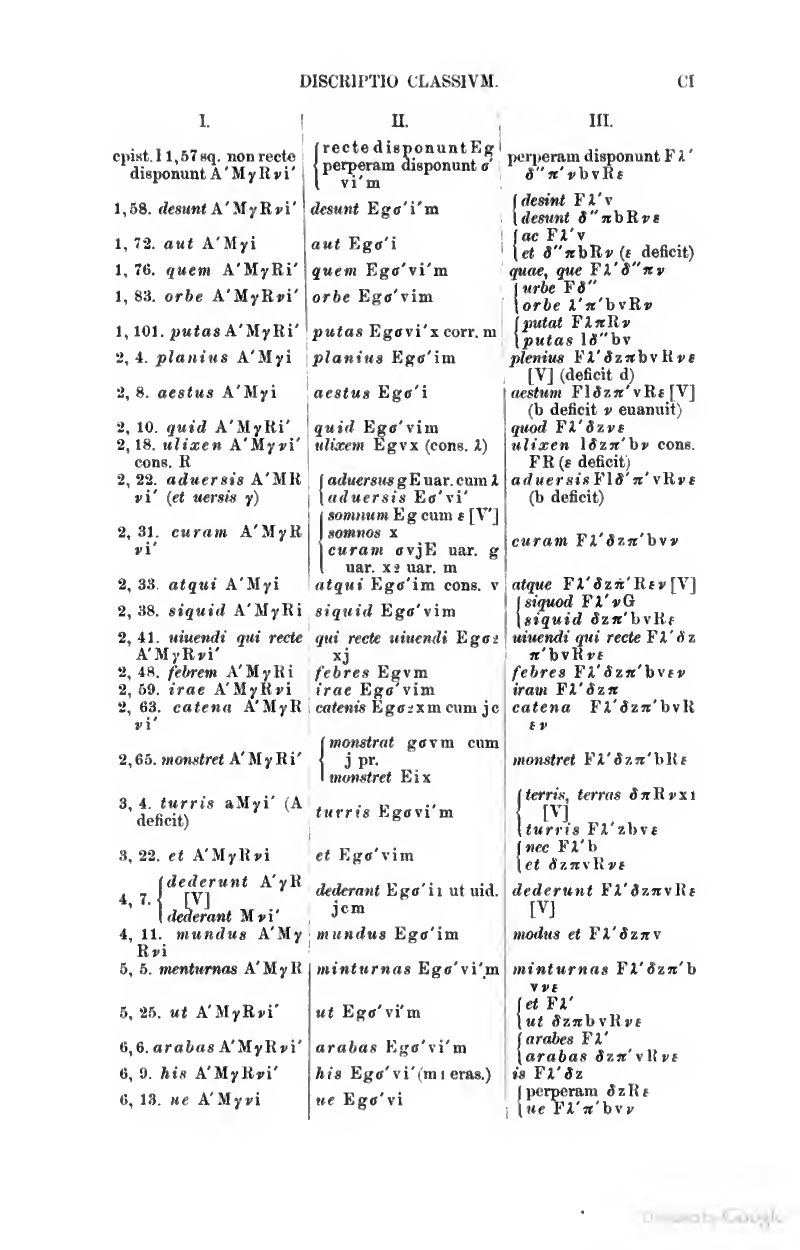 DISCRIPTIO CLASSIVM. CI
I. II. III.
epist. I 1,57 sq. non recte
disponunt A′MγRνi′
recte disponunt Eg
perperam disponunt σ′
vi′m
perperam disponunt Fλ′
δ″π′νbvRε
1,58. desunt A′MγRνi′
desunt Egσ′i′m
desint Fλ′v
desunt δ″πbRνε
1, 72. aut A′Mγi
aut Egσ′i
ac Fλ′v
et δ″πbRν (ε deficit)
1, 76. quem A′MγRi′
quem Egσ′vi′m
quae, que Fλ′δ″πν
1, 83. orbe A′MγRνi′
orbe Egσ′vim
urbe Fδ″
orbe λ′π′bvRν
1, 101. putas A′MγRi′
putas Egσvi′x corr. m
putat FλπRν
putas lδ″bv
2, 4. planius A′Mγi
planius Egσ′im
plenius Fλ′δzπbvRνε
[V] (deficit d)
2, 8. aestus A′Mγi
aestus Egσ′i
aestum Flδzπ′vRε [V]
(b deficit ν euanuit)
2, 10. quid A′MγRi′
quid Egσ′vim
quod Fλ′δzνε
2, 18. ulixen A′Mγνi′
cons. R
ulixem Egvx (cons. λ)
ulixen lδzπ′bν cons.
FR (ε deficit)
2, 22. aduersis A′MR
νi′ (et uersis γ)
aduersus gE uar. cum λ
aduersis Eσ′vi′
aduersis Flδ′π′vRνε
(b deficit)
2, 31. curam A′MγR
νi′
somnum Eg cum ε [V′]
somnos x
curam σvjE uar. g
uar. x2 uar. m
curam Fλ′δzπ′bvν
2, 33. atqui A′Mγi
atqui Egσ′im cons. v
atque Fλ′δzπ′Rεν [V]
2, 38. siquid A′MγRi
siquid Egσ′vim
siquod Fλ′νG
siquid δzπ′bvRε
2, 41. uiuendi qui recte
A′MγRνi′
qui recte uiuendi Egσ2
xj
uiuendi qui recte Fλ′δz
π′bvRνε
2, 48. febrem A′MγRi
febres Egvm
febres Fλ′δzπ′bvεν
2, 59. irae A′MγRνi
irae Egσ′vim
iram Fλ′δzπ
2, 63. catena A′MγR
νi′
catenis Egσ2xm cum jc
catena Fλ′δzπ′bvR
εν
2,65. monstret A′MγRi′
monstrat gσvm cum
j pr.
monstret Eix
monstret Fλ′δzπ′bRε
3, 4. turris aMγi′ (A
deficit)
turris Egσvi′m
terris, terras δπRνx1
[V]
turris Fλ′zbvε
3, 22. et A′MγRνi
et Egσ′vim
nec Fλ′b
et δzπvRνε
4, 7. dederunt A′γR
[V]
dederant Mνi′
dederant Egσ′i1 ut uid.
jcm
dederunt Fλ′δzπvRε
[V]
4, 11. mundus A′Mγ
Rνi
mundus Egσ′im
modus et Fλ′δzπν
5, 5. menturnas A′MγR
minturnas Egσ′vi′m
minturnas Fλ′δzπ′b
vνε
5, 25. ut A′MγRνi′
ut Egσ′vi′m
et Fλ′
ut δzπbvRνε
6,6. arabas A′MγRνi′
arabas Egσ′vi′m
arabes Fλ′
arabas δzπ′vRνε
6, 9. his A′MγRνi′
his Egσ′vi′ (m1 eras.)
is Fλ′δz
6, 13. ne A′Mγνi
ue Egσ′vi
perperam δzRε
ue Fλ′π′bvν
Digitized by Google